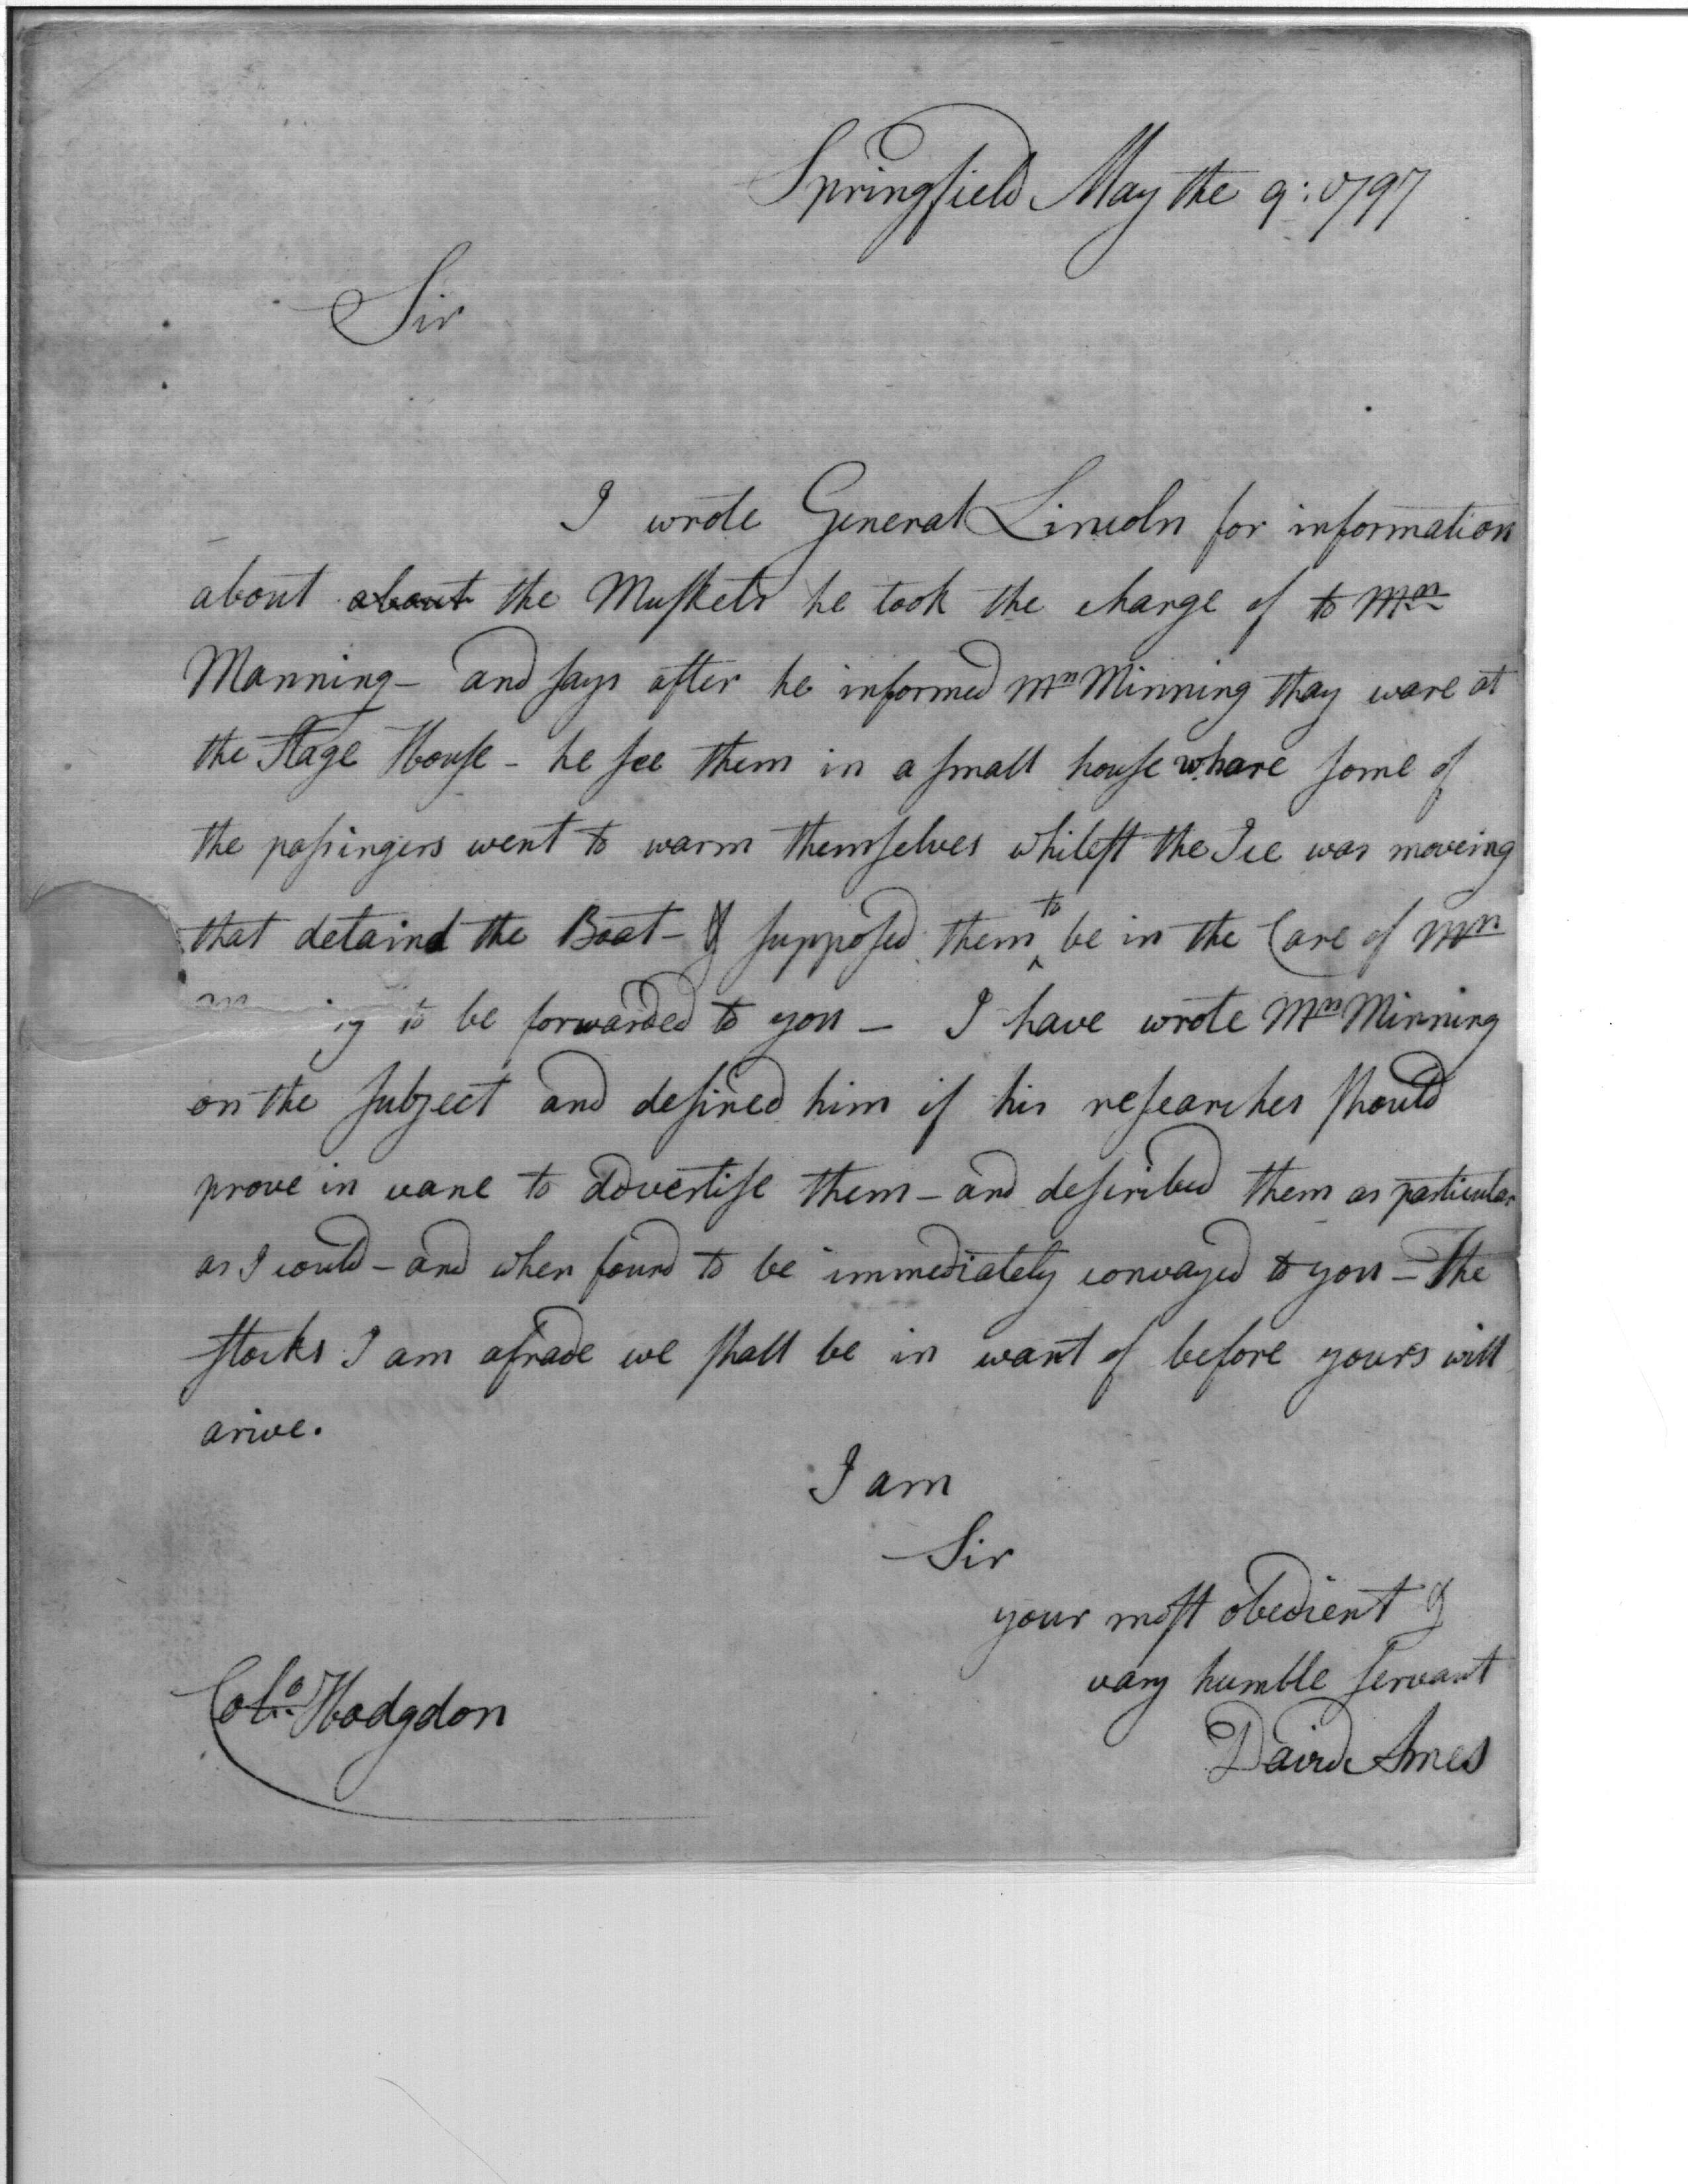 Springfield May the 9: 1797
Sir
I wrote General Lincoln for information
about about the Muskets he took the charge of to Mr
Manning - and says after he informed Mr Minning thay ware at
the Stage House - he see them in a small house whare some of
the passingers went to warm themselves whilest the Ice was moveing
that detaind the Boat - & supposed them to be in the Care of Mr
to be forwarded to you - I have wrote Mr Minning
on the subject and desired him if his researches should
prove in vane to advertise them - and described them as particular
as I could - and when found to be immediately convayed to you - The
stocks I am afrade we shall be in want of before yours will
arive.
I am
Sir
your most obedient &
vary humble servant
David Ames
Colo. Hodgdon